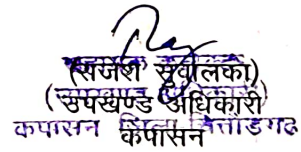 (राजेश सुवालका)
(उपखण्ड अधिकारी
कपासन जिला चित्तौड़गढ
कपासन